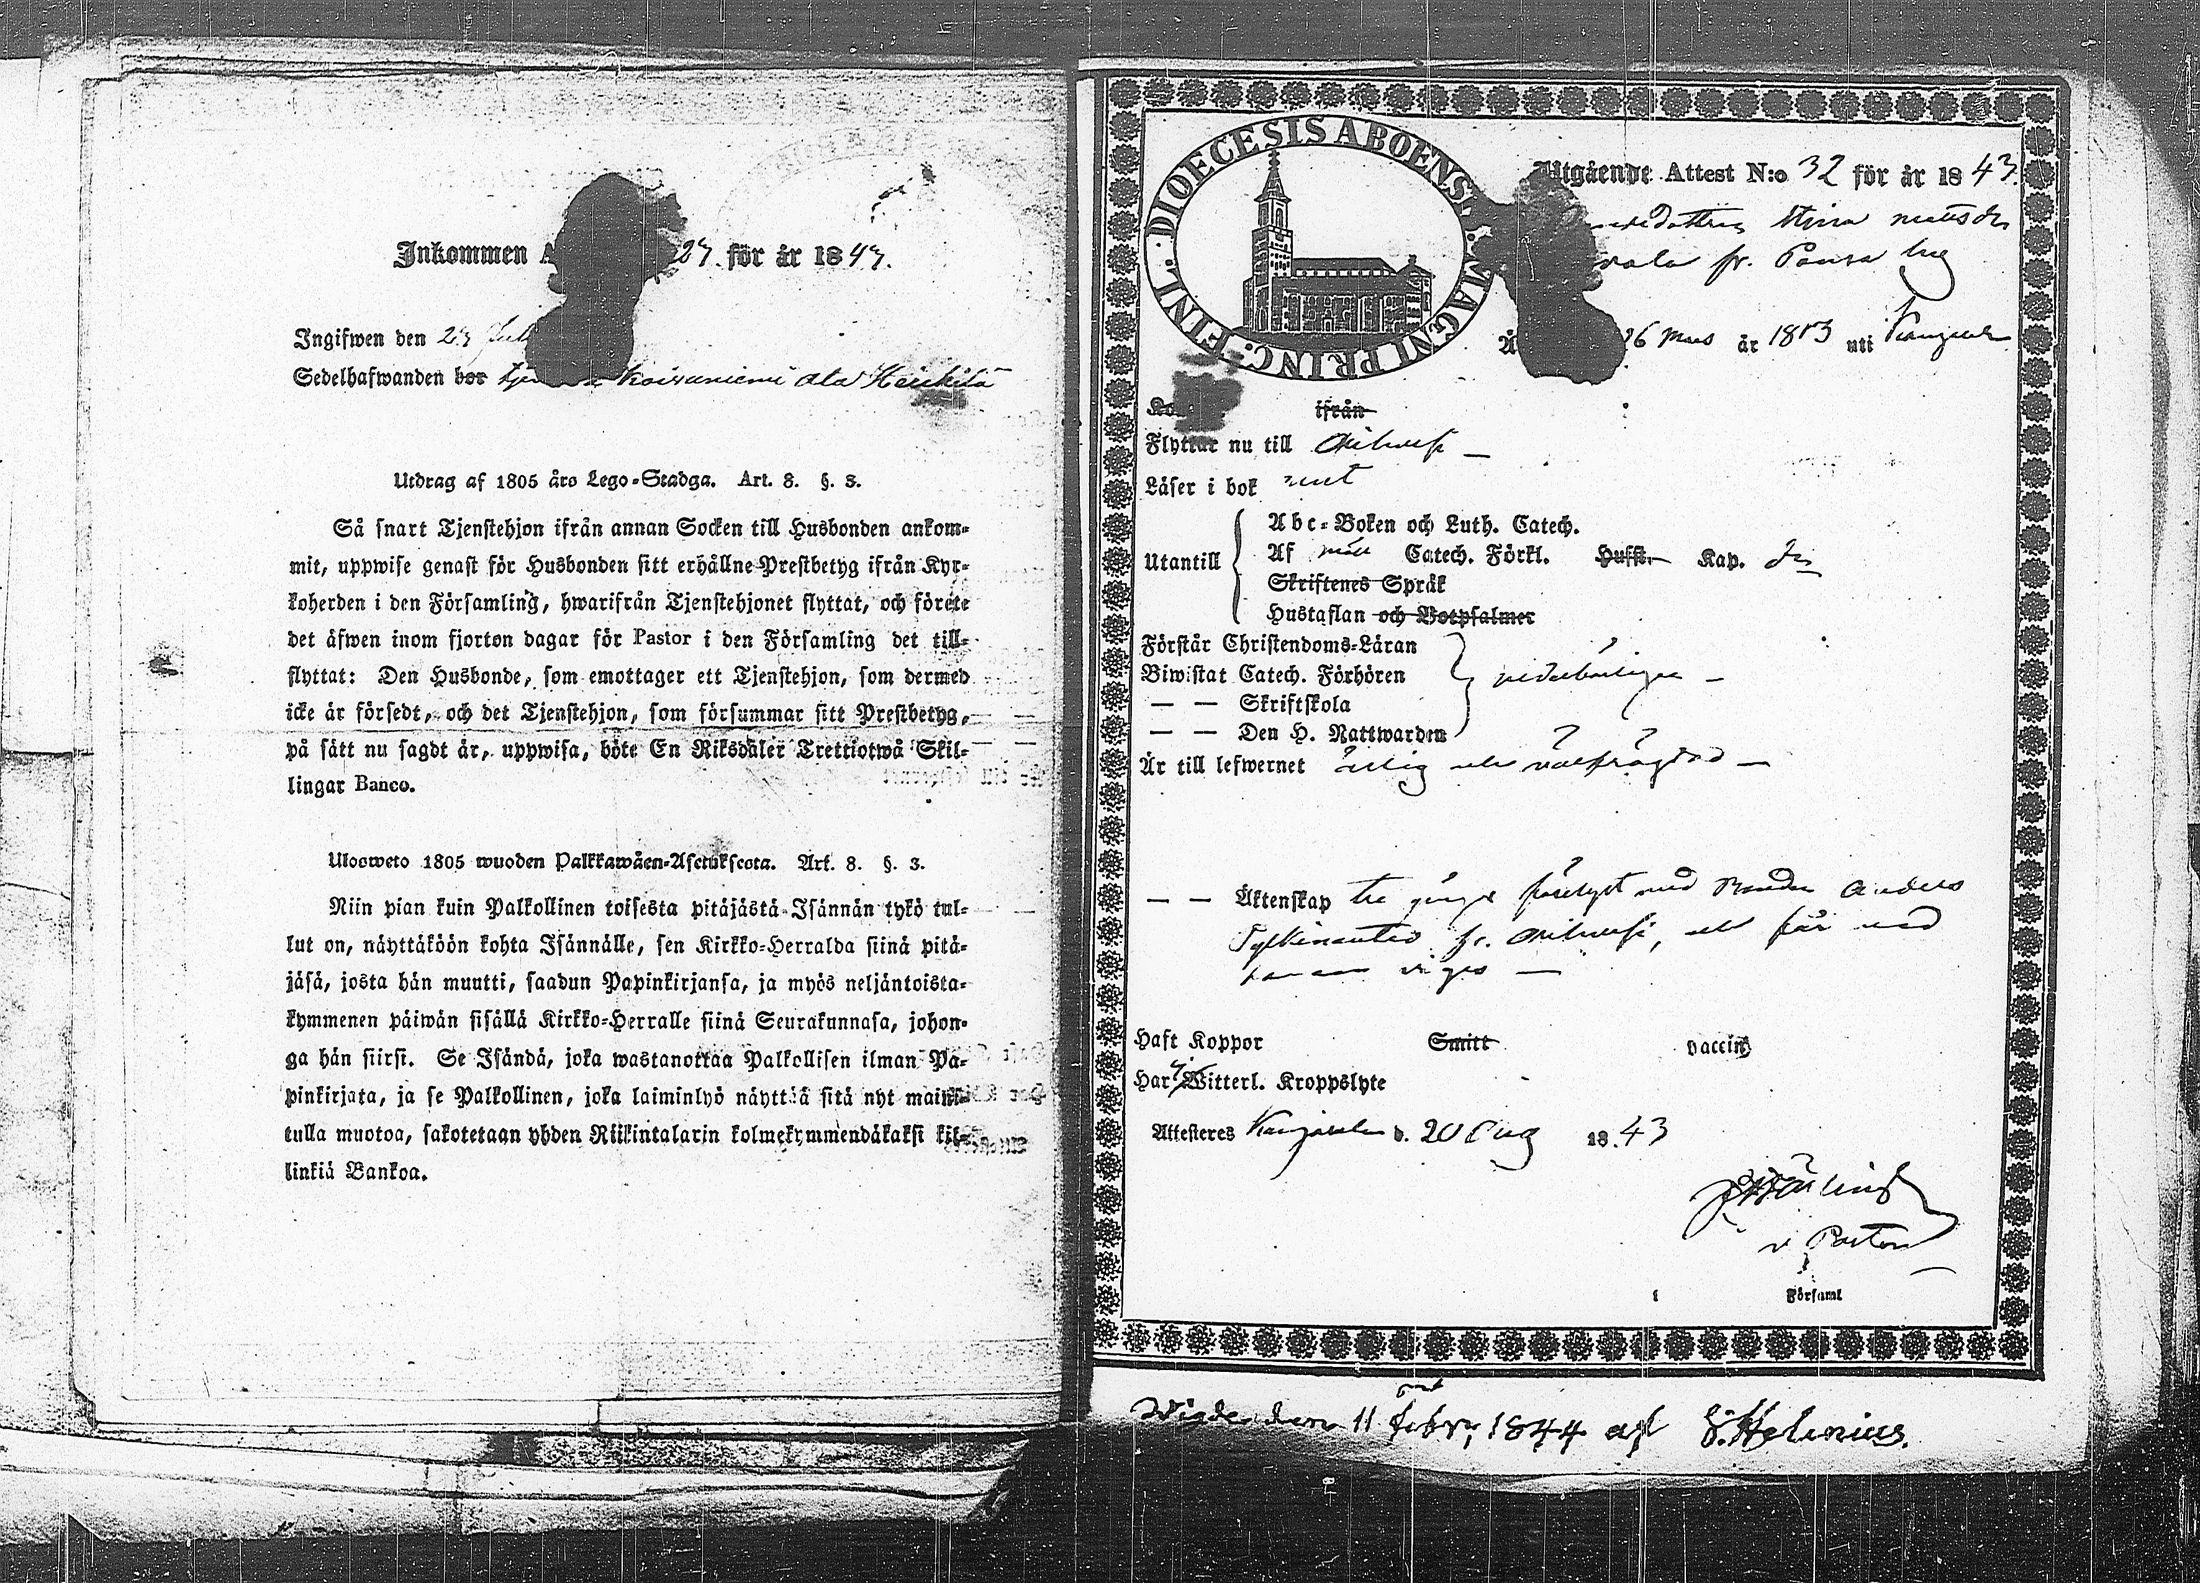 Inkommen A 27. för år 1843.
Ingifwen den 23 Jul
Sedelhafwanden bor Koivuniemi ala Heikkilä
Utdrag af 1805 års Lego-Stadga. Art. 8. §. 3.
Så snart Tjenstehjon ifrån annan Socken till Husbonden ankom-
mit, uppwise genast för Husbonden sitt erhållne Prestbetyg ifrån Kyr-
koherden i den Församling, hwarifrån Tjenstehjonet flyttat, och förete
det äfwen inom fjorton dagar för Pastor i den Församling det till-
flyttat: Den Husbonde, som emottager ett Tjenstehjon, som dermed
icke är försedt, och det Tjenstehjon, som försummar sitt Prestbetyg,
på sätt nu sagdt är, uppwisa, böte En Riksdaler Trettiotwå Skil-
lingar Banco.
Ulosweto 1805 wuoden Palkkawäen-Asetuksesta. Art. 8. §. 3.
Niin pian kuin Palkollinen toisesta pitäjästä Isännän tykö tul-
lut on, näyttäköön kohta Isännälle, sen Kirkko-Herralda siinä pitä-
jäsä, josta hän muutti, saadun Papinkirjansa, ja myös neljäntoista-
kymmenen päiwän sisällä Kirkko-Herralle siinä Seurakunnasa, johon-
ga hän siirsi. Se Isändä, joka wastanottaa Palkollisen ilman Pa-
pinkirjata, ja se Palkollinen, joka laiminlyö näyttää sitä nyt maini-
tulla muotoa, sakotetaan yhden Riikintalarin kolmekymmendäkaksi kil-
linkiä Bankoa.
DIOECESIS ABOENS. MAGNI PRINC. FINL.
Utgående Attest N:o 32 för år 1843.
Stina Mattsdr
fr. Pansa
26 Mars år 1813 uti Kangasala
ifrån
Flyttar nu till Orihvesi
Läser i bok rent
Utantill
Abc-Boken och Luth. Catech.
Af Catech. Förkl. Kap.
Skriftenes Språk
Hustaflan och Botpsalmer
Förstår Christendoms-Läran
Biwistat Catech. Förhören
— — Skriftskola
— — Den H. Nattwarden
Är till lefwernet ärlig och välfrägdad
— — Äktenskap tre gånger förelyst med Bonden Anders
fr. Orihvesi, och får med
honom viges
Haft Koppor Smitt vaccin
Har Witterl. Kroppslyte
Attesteres Kangasala d. 20 Aug 1843
v Pastor
i Församl
Wigde den 11 Febr: 1844 af Helenius.